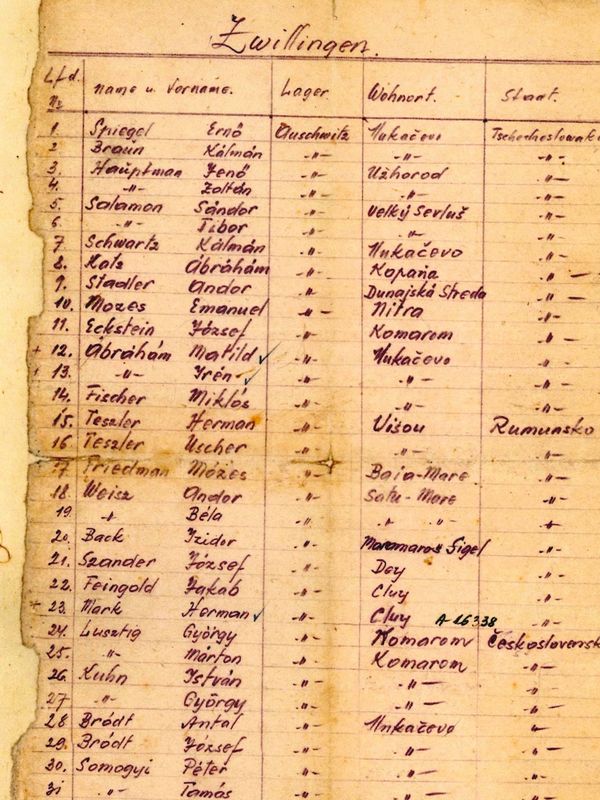 Zwillingen.
Lfd. Nr. Name u. Vorname. Lager. Wohnort. Staat.
1. Spiegel Ernő Auschwitz Mukačevo Tschechoslowak
2 Braun Kálmán -"- -"- -"-
3. Hauptman Jenő -"- Užhorod -"-
4. -"- Zoltán -"- -"- -"-
5. Salamon Sándor -"- Velký Sevluš -"-
6. -"- Tibor -"- -"- -"-
7. Schwartz Kálmán -"- Mukačevo -"-
8. Katz Ábrahám -"- Kopaňa -"-
9. Stadler Andor -"- Dunajská Streda -"-
10. Mozes Emanuel -"- Nitra -"-
11. Eckstein József -"- Komarom -"-
+ 12. Ábrahám Matild ✓ -"- Mukačevo -"-
13. -"- Irén ✓ -"- -"- -"-
14. Fischer Miklós -"- -"- -"-
15. Teszler Herman -"- Višou Rumunsko
16 Teszler Uscher -"- -"- -"-
17 Friedman Mózes -"- Baia-Mare -"-
18. Weisz Andor -"- Satu-Mare -"-
19. -"- Béla -"- -"- -"- -"-
20. Back Izidor -"- Maramaros Sigel -"-
21. Szander József -"- Dey -"-
22. Feingold Jakab -"- Cluy -"-
+ 23. Mark Herman ✓ -"- Cluy A 16338 -"-
24. Lusztig György -"- Komarom Československ
25. -"- Márton -"- Komarom -"-
26. Kuhn István -"- -"- -"-
27 -"- György -"- -"- -"-
28 Bródt Antal -"- Mnkačevo -"-
29. Bródt József -"- -"- -"-
30. Somogyi Péter -"- -"- -"-
31 -"- Tamás -"- -"- -"-